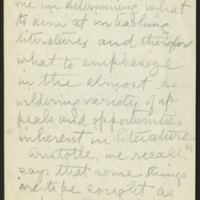 me in determining what
to aim at in teaching
literature, and therefor
what to emphasize
in the almost be
wildering variety of ap-
peals and opportunities
inherent in literature.
Aristotle, we recall,
says that some things
are to be sought as